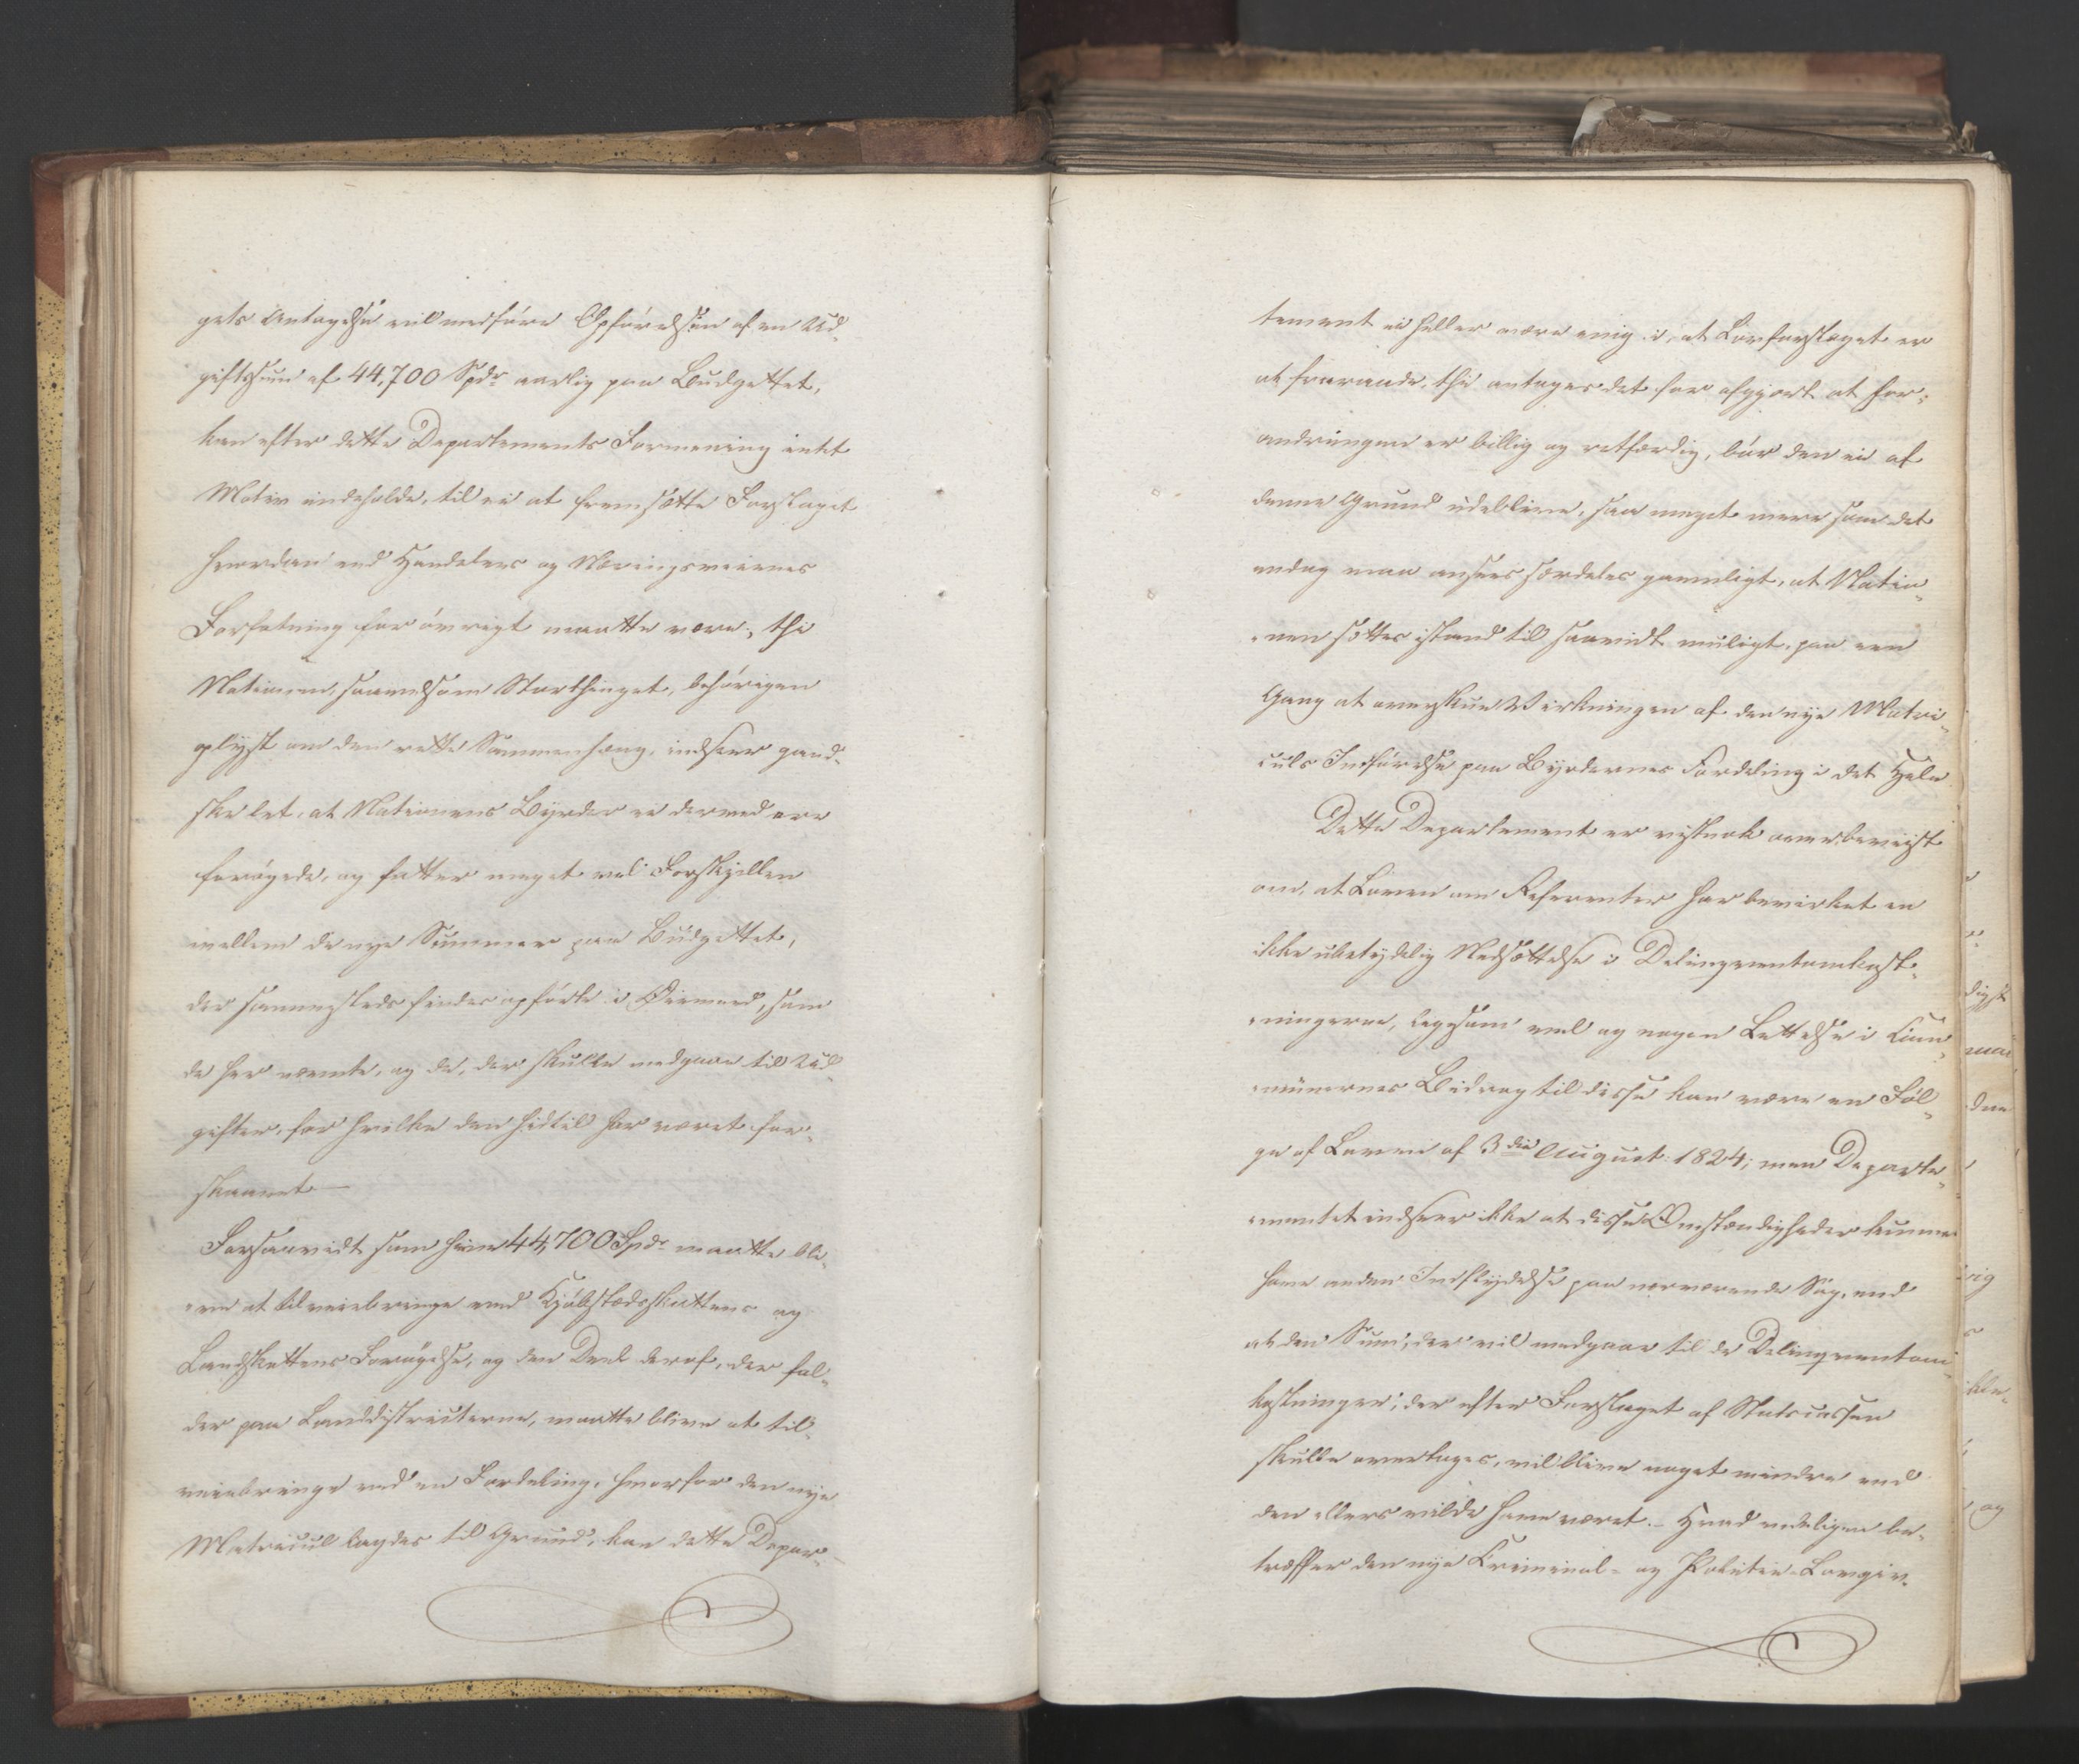 gets Antagelse vil medføre Opførelsen af en Ud-
giftssum af 44,700 Spdr aarlig paa Budgettet,
kan efter dette Departements Formening intet
Motiv indeholde, til ei at fremsætte Forslaget
hvordan end Handelens og Næringsveienes
Forfatning forøvrigt maatte være; thi
Nationen, saavelsom Storthinget, behørigen
oplyst om den rette Sammenhæng, indseer gand-
ske let, at Nationens Byrder ei dermed ere
forøgede, og fatter meget vel Forskjellen
mellem de nye Summer paa Budgettet,
der sammesteds findes opførte i Øiemed, som
de her nævnte, og de, der skulle medgaae til Ud-
gifter, for hvilke den hidtil har været for-
skaanet —
Forsaavidt som hine 44,700 Spdr maatte bli-
ve at tilveiebringe ved Kjøbstadsskattens og
Landskattens Forøgelse, og den Deel deraf, der fal-
der paa Landdistricterne, maatte blive at til-
veiebringe ved en Fordeling, hvorfor den nye
Matricul lagdes til Grund, kan dette Depar-
tement ei heller være enig i, at Lovforslaget er
at fraraade, thi antages det for afgjort at For-
andringen er billig og retfærdig, bør den ei af
denne Grund udeblive, saa meget mere som det
endog maa ansees særdeles gavnligt, at Natio-
nen sættes istand til saavidt muligt, paa een
Gang at overskue Virkningen af den nye Matri-
culs Indførelse paa Byrdernes Fordeling i det Hele
Dette Departement er vistnok overbeviist
om, at Loven om Referenter har bevirket en
ikke ubetydelig Nedsættelse i Delinqventomkost-
ningerne, ligesom vel og nogen Lettelse i Com-
munernes Bidrag til disse kan være en Føl-
ge af Loven af 3die August 1824; men Departe-
mentet indseer ikke at disse Omstændigheder kunne
have anden Indflydelse paa nærværende Sag, end
at den Sum, der vil medgaae til de Delinqventom-
kostninger, der efter Forslaget af Statscassen
skulle overtages, vil blive noget mindre end
den ellers vilde have været. – Hvad endeligen be-
træffer den nye Criminal- og Politie-Lovgiv-